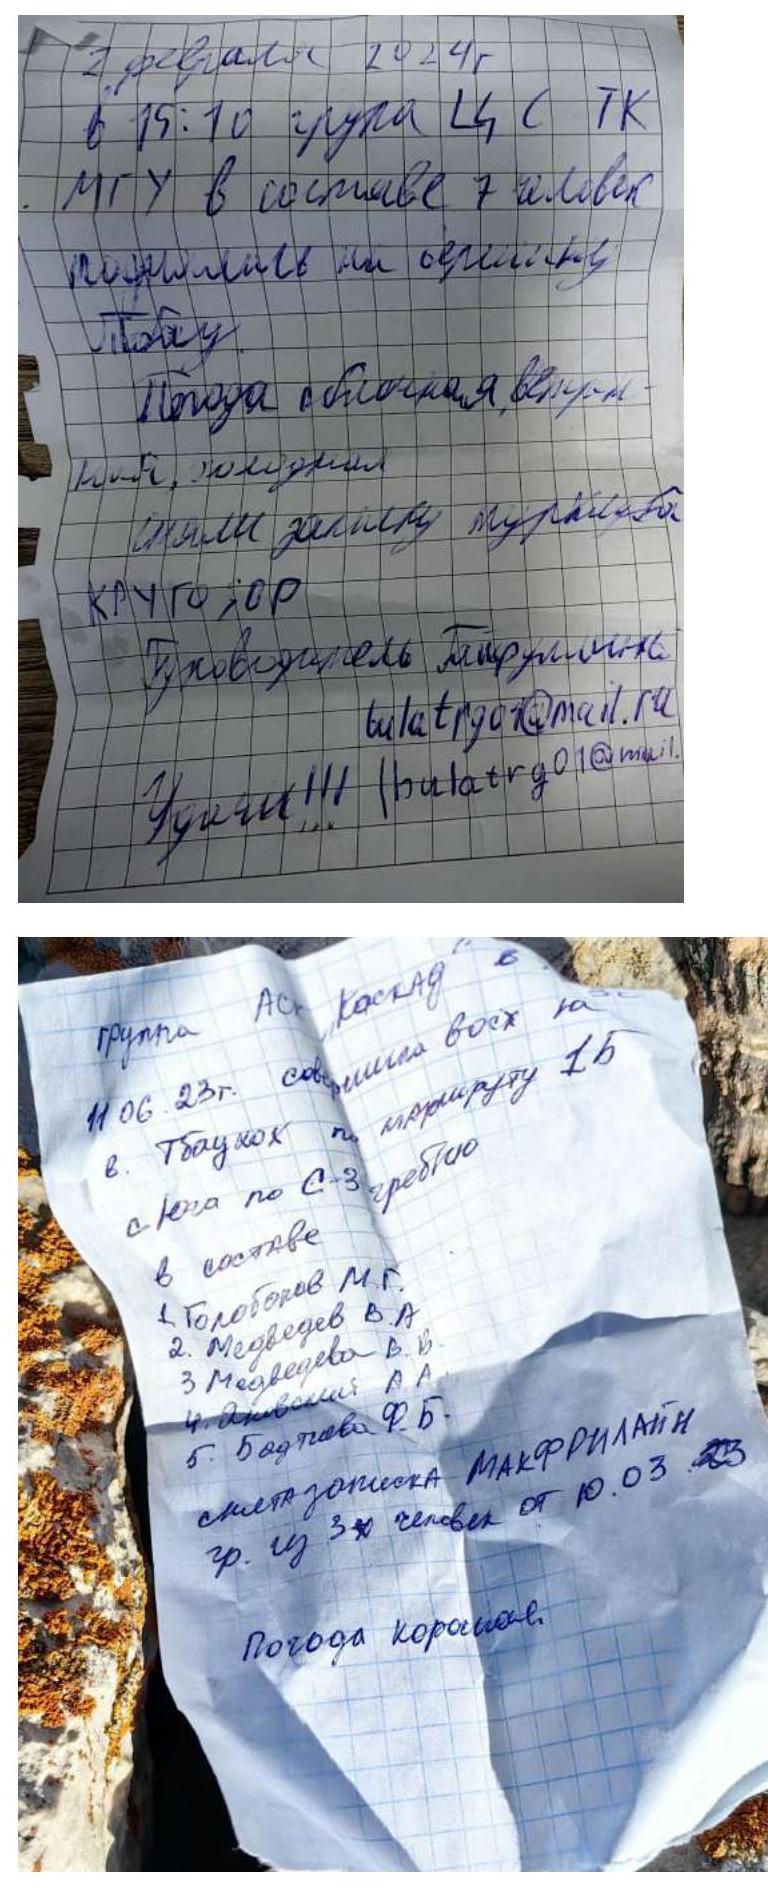 2 февраля 2024г
в 15:10 група ЦС ТК
МГУ в составе 7 человек
поднялись на вершину
Тбау.
Погода облачная, ветрен-
ная, холодная
сняли записку турклуба
КРУГОЗОР
Руководитель
bulatrg01@mail.ru
Удачи!!! (bulatrg01@mail.
группа АСК "КАСКАД" в
11 06.23г. совершила восх на
в. Тбаухох по маршруту 1Б
с Юга по С-З гребню
в составе
1 Голобоков М.Г.
2. Медведев В.А
3 Медведева В.В.
4. А А.
5. Ф.Б.
снята записка МАКФРИЛАЙН
гр. из 3х человек от 10.03.23
Погода хорошая.